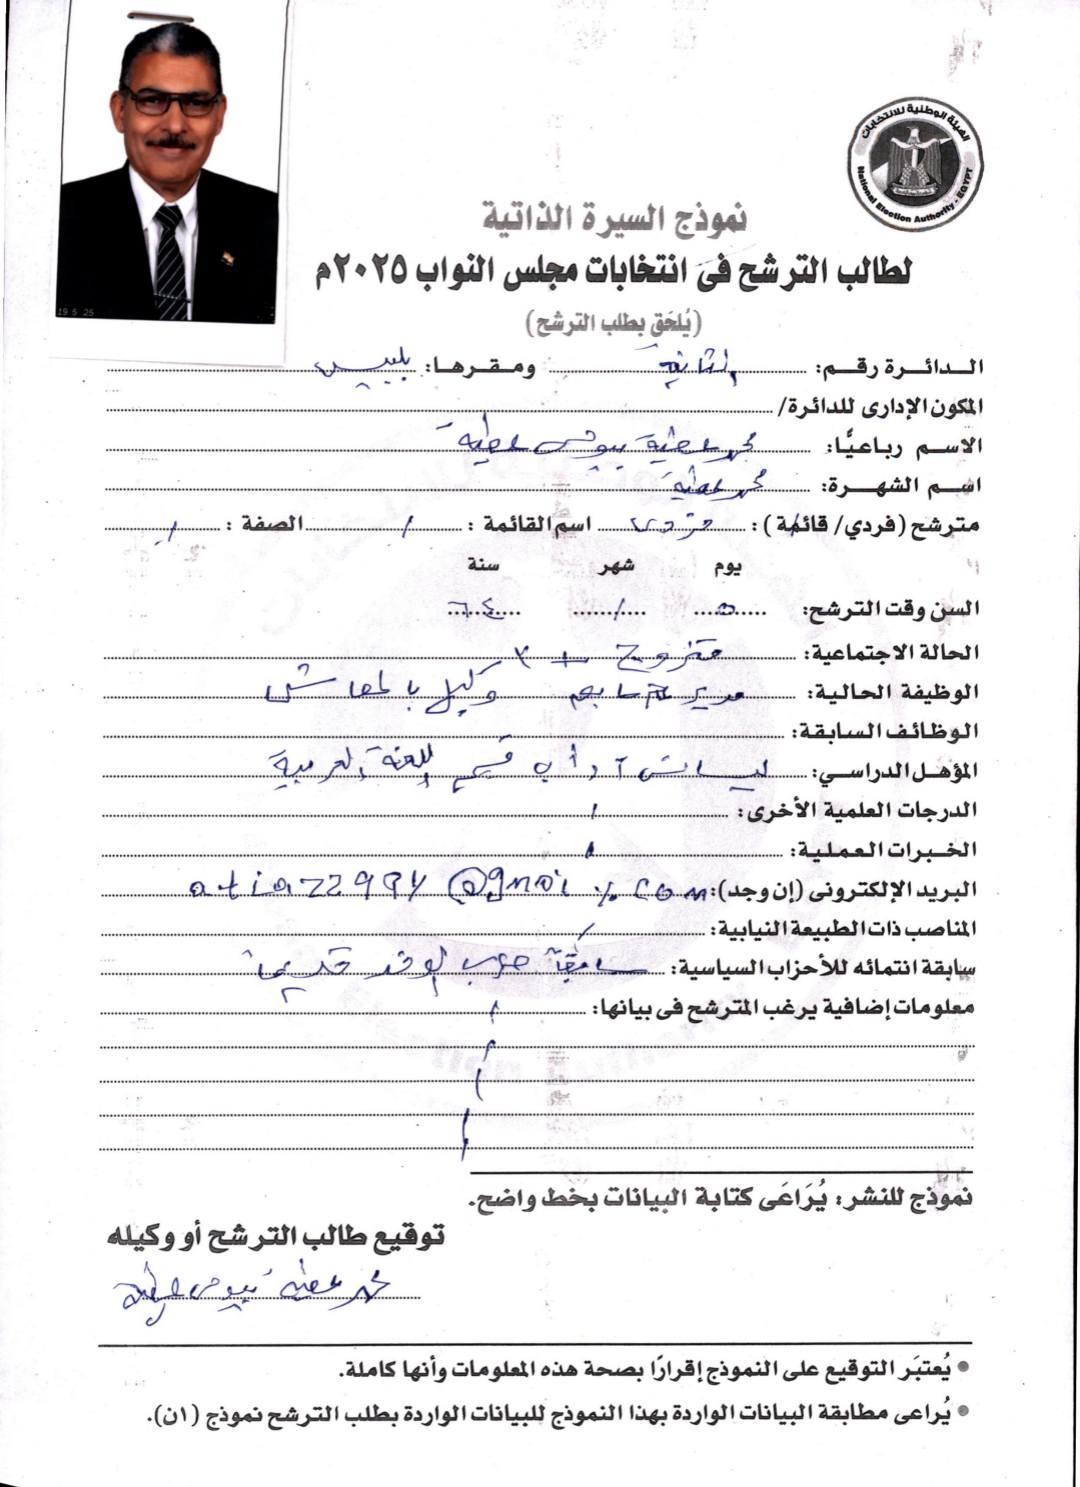 الهيئة الوطنية للانتخابات
National Election Authority - EGYPT
19 5 25
نموذج السيرة الذاتية
لطالب الترشح فى انتخابات مجلس النواب ٢٠٢٥م
(يُلحَق بطلب الترشح)
الدائرة رقم: الثانية ومقرها: بلبيس
المكون الإدارى للدائرة/
الاسم رباعيًا: محمد عطية بيومى عطية
اسم الشهرة: محمد عطية
مترشح (فردي/ قائمة): فردى اسم القائمة: / الصفة: /
يوم شهر سنة
السن وقت الترشح: ٥ / ٦٤
الحالة الاجتماعية: متزوج + ٣
الوظيفة الحالية: مدير عام سابق وكيل بالمعاش
الوظائف السابقة:
المؤهل الدراسي: ليسانس آداب قسم اللغة العربية
الدرجات العلمية الأخرى: /
الخبرات العملية:
البريد الإلكترونى (إن وجد):
المناصب ذات الطبيعة النيابية: /
سابقة انتمائه للأحزاب السياسية: سابقة حزب الوفد قديما
معلومات إضافية يرغب المترشح فى بيانها: /
نموذج للنشر: يُرَاعَى كتابة البيانات بخط واضح.
توقيع طالب الترشح أو وكيله
محمد عطية بيومى عطية
• يُعتبَر التوقيع على النموذج إقرارًا بصحة هذه المعلومات وأنها كاملة.
• يُراعى مطابقة البيانات الواردة بهذا النموذج للبيانات الواردة بطلب الترشح نموذج (١ن).